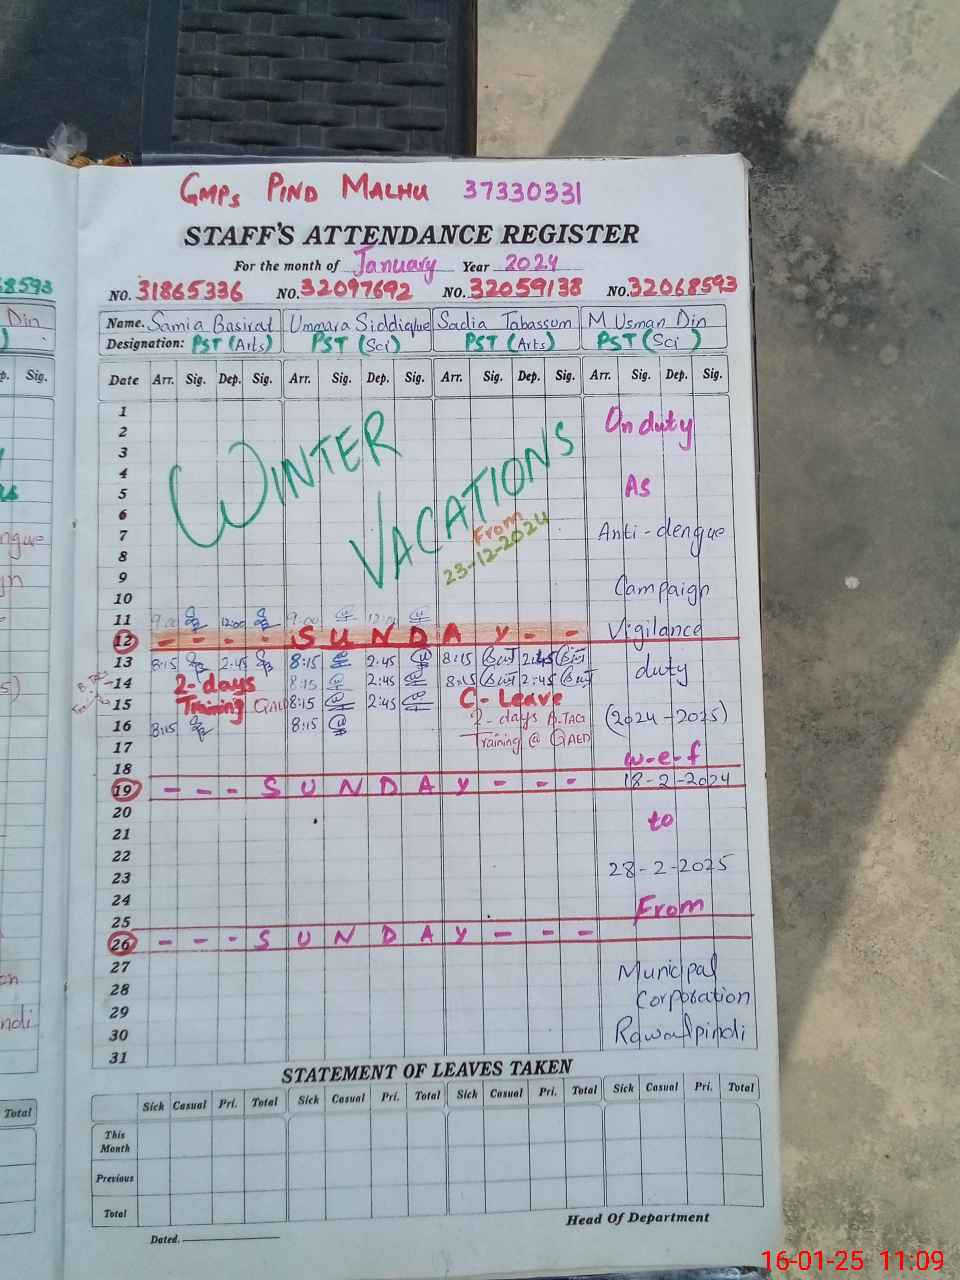 GMPS PIND MALHU 37330331
STAFF'S ATTENDANCE REGISTER
For the month of January Year 2024
NO. 31865336 NO. 32097692 NO. 32059138 NO. 32068593
Name. Samia Basirat Ummara Siddique Sadia Tabassum M Usman Din
Designation: PST (Arts) PST (Sci) PST (Arts) PST (Sci)
Date Arr. Sig. Dep. Sig. Arr. Sig. Dep. Sig. Arr. Sig. Dep. Sig. Arr. Sig. Dep. Sig.
1
2 On duty
3
4 WINTER
5 As
6 VACATIONS
7 From Anti-dengue
8 23-12-2024
9
10 Campaign
11 9:00 12:00 9:00 12:00
12 - - - - SUNDAY - - Vigilance
13 8:15 2:45 8:15 2:45 8:15 2:45
14 2-days 8:15 2:45 8:15 2:45 duty
15 Training GAED 8:15 2:45 C-Leave
16 8:15 8:15 2-days Training @ GAED (2024-2025)
17 w-e-f
18
19 - - - SUNDAY - - - 18-2-2024
20 to
21
22
23 28-2-2025
24
25 From
26 - - - SUNDAY - - -
27 Municipal
28 Corporation
29
30 Rawalpindi
31
STATEMENT OF LEAVES TAKEN
Sick Casual Pri. Total Sick Casual Pri. Total Sick Casual Pri. Total Sick Casual Pri. Total
This Month
Previous
Total
Head Of Department
Dated.
68593
Din
Sig.
Total
16-01-25 11:09